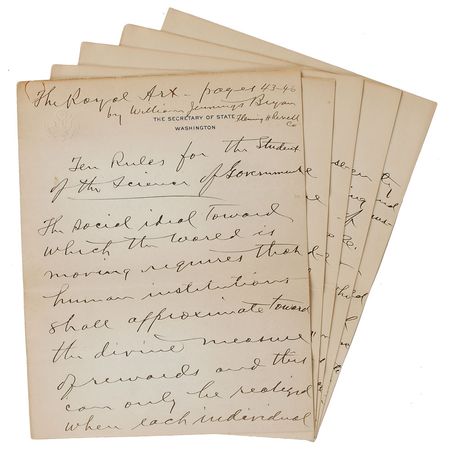 The Royal Art - pages 43-46
by William Jennings Bryan
THE SECRETARY OF STATE
Fleming H Revell
Co
WASHINGTON
Ten Rules for the Student
of the Science of Government
The social ideal toward
which the world is
moving requires that
human institutions
shall approximate toward
the divine measure
of rewards and this
can only be realized
when each individual